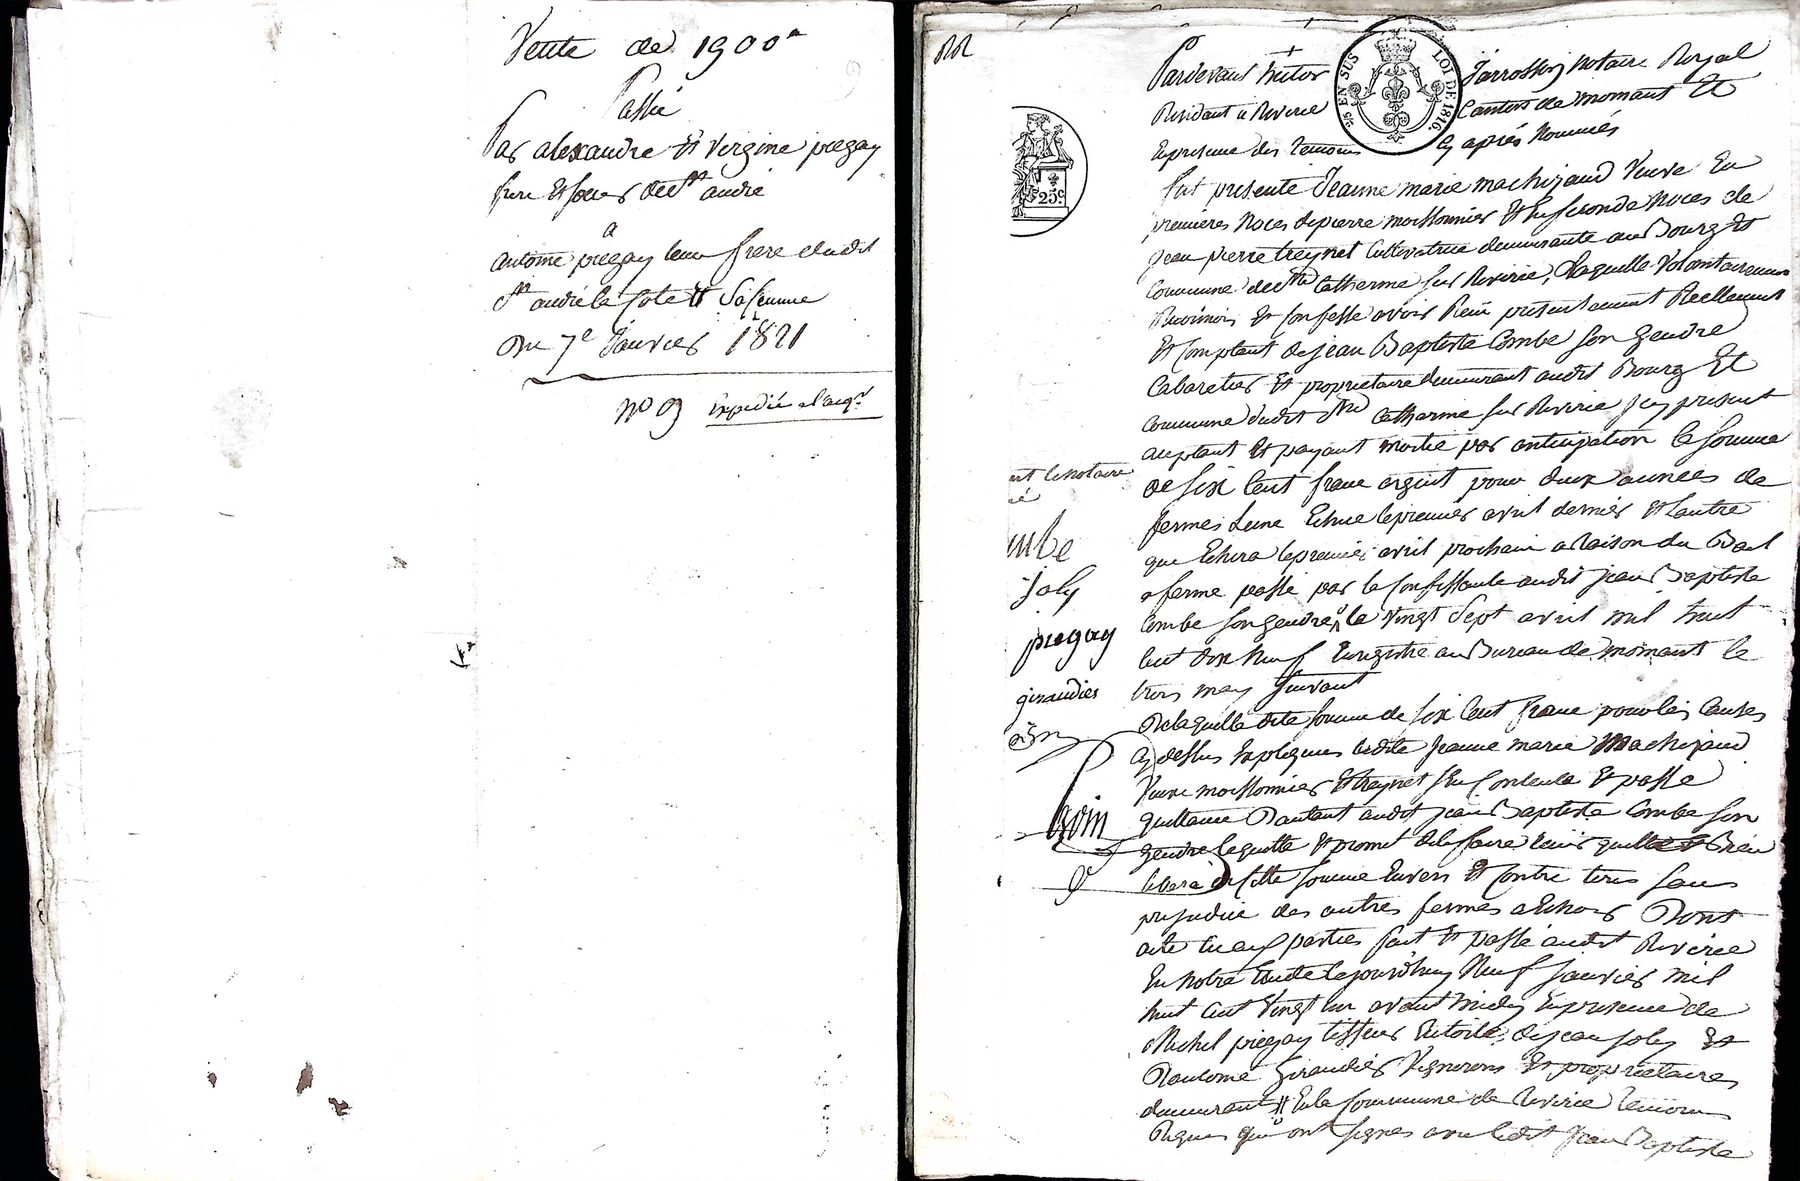 Vente de 1900 fr
Passé
Par alexandre et Vergine piegay
frere et soeur de St andré
a
antoine piegay leur frere dudit
St andré la Cote et sa femme
Du 7e Janvier 1821
No 9 Expedié a l'acqr
Pardevant Victor Jarrosson notaire Royal
Residant a Riverie Canton de mornant Et
En presence des temoins cy aprés Nommés
fut presente Jeanne marie machizaud Veuve En
premieres Noces de pierre moissonnier et En seconde Noces de
Jean pierre treynet Cultivatrice demeurante au Bourg et
Commune de Ste Catherine sur Riverie, Laquelle Volontairement
Reconnois et Confesse avoir Reçu presentement Reellement
Et Comptant de jean Baptiste Combe son gendre
Cabaretier Et proprietaire demeurant audit Bourg Et
Commune dudit Ste Catherine sur Riverie Icy present
acceptant Et payant moitié par anticipation la somme
de six Cent franc argent pour deux années de
fermes Lune Echue le premier avril dernier et Lautre
que Echera le premier avril prochain a Raison du Bail
a ferme passé par la Confessante audit jean Baptiste
Combe son gendre le vingt sept avril mil huit
Cent dix neuf Enregistré au Bureau de mornant le
trois may suivant
De laquelle dite somme de six Cent franc pour les Causes
cy dessus Expliquées ladite Jeanne marie Machizaud
Veuve moissonnier Et treynet sen Contente Et passe
quittance Dautant audit Jean Baptiste Combe son
gendre Lequitte Et promet de le faire tenir quitte et Bien
liberé de Cette somme Envers Et Contre tous sans
prejudice des autres fermes a Echoir Dont
acte lu aux parties fait Et passé audit Riverie
En notre Etude Le jourdhuy Neuf janvier mil
huit Cent Vingt un avant midy En presence de
Michel piegay tisseur En toile, de jean joly Et
Dantoine Giraudier Vignerons Et proprietaires
demeurants En la Commune de Riverie temoins
Requis qui ont signés avec ledit Jean Baptiste
EN SUS
LOI DE 1816.
25c
le notaire
mbe
joly
piegay
giraudier